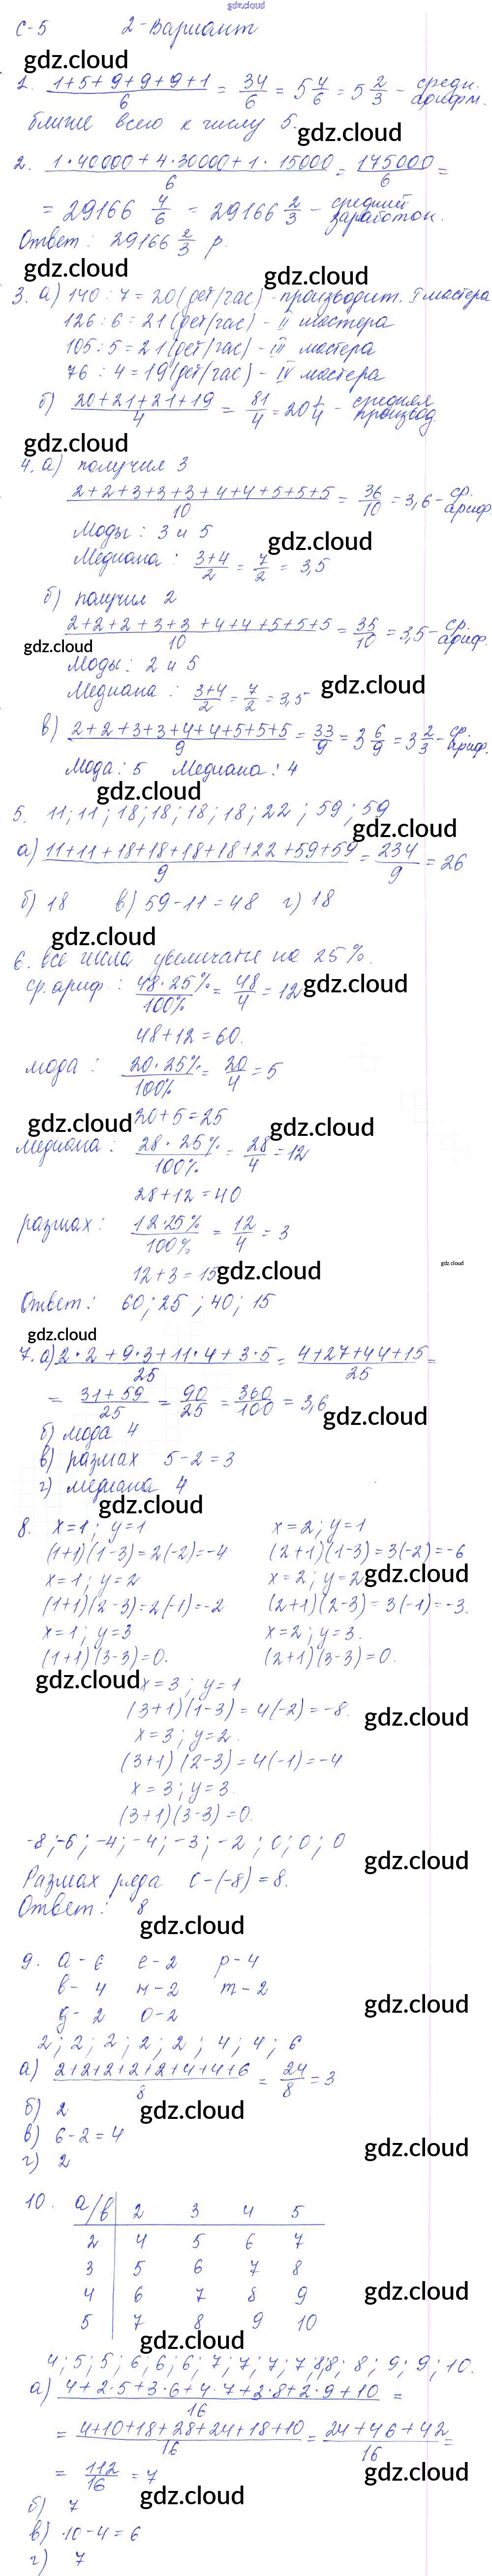 gdz.cloud
С-5 2-Вариант
gdz.cloud
1. (1+5+9+9+9+1)/6 = 34/6 = 5 4/6 = 5 2/3 - средн. арифм.
ближе всего к числу 5.
gdz.cloud
2. (1·40000+4·30000+1·15000)/6 = 175000/6 =
= 29166 4/6 = 29166 2/3 - средний заработок.
Ответ: 29166 2/3 р.
gdz.cloud
gdz.cloud
3. а) 140:7=20(дет/час) - производит. I мастера
126:6=21(дет/час) - II мастера
105:5=21(дет/час) - III мастера
76:4=19(дет/час) - IV мастера
б) (20+21+21+19)/4 = 81/4 = 20 1/4 - средняя производ.
gdz.cloud
4. а) получил 3
(2+2+3+3+3+4+4+5+5+5)/10 = 36/10 = 3,6 - ср. ариф.
Моды: 3 и 5
gdz.cloud
Медиана: (3+4)/2 = 7/2 = 3,5
б) получил 2
(2+2+2+3+3+4+4+5+5+5)/10 = 35/10 = 3,5 - ср. ариф.
gdz.cloud
Моды: 2 и 5
Медиана: (3+4)/2 = 7/2 = 3,5
gdz.cloud
в) (2+2+3+3+4+4+5+5+5)/9 = 33/9 = 3 6/9 = 3 2/3 - ср. ариф.
Мода: 5 Медиана: 4
gdz.cloud
5. 11; 11; 18; 18; 18; 18; 22; 59; 59
gdz.cloud
а) (11+11+18+18+18+18+22+59+59)/9 = 234/9 = 26
б) 18 в) 59-11=48 г) 18
gdz.cloud
6. все числа увеличить на 25%.
ср. ариф: (48·25%)/100% = 48/4 = 12
gdz.cloud
48+12=60.
мода: (20·25%)/100% = 20/4 = 5
gdz.cloud
20+5=25
gdz.cloud
медиана: (28·25%)/100% = 28/4 = 12
28+12=40
размах: (12·25%)/100% = 12/4 = 3
gdz.cloud
12+3=15
gdz.cloud
Ответ: 60; 25; 40; 15
gdz.cloud
7. а) (2·2+9·3+11·4+3·5)/25 = (4+27+44+15)/25 =
= (31+59)/25 = 90/25 = 360/100 = 3,6
gdz.cloud
б) мода 4
в) размах 5-2=3
г) медиана 4
gdz.cloud
8. x=1; y=1 x=2; y=1
(1+1)(1-3)=2(-2)=-4 (2+1)(1-3)=3(-2)=-6
x=1; y=2 x=2; y=2
gdz.cloud
(1+1)(2-3)=2(-1)=-2 (2+1)(2-3)=3(-1)=-3.
x=1; y=3 x=2; y=3.
(1+1)(3-3)=0. (2+1)(3-3)=0.
gdz.cloud
x=3; y=1
(3+1)(1-3)=4(-2)=-8.
gdz.cloud
x=3; y=2.
(3+1)(2-3)=4(-1)=-4
x=3; y=3.
(3+1)(3-3)=0.
-8; -6; -4; -4; -3; -2; 0; 0; 0
gdz.cloud
Размах ряда 0-(-8)=8.
Ответ: 8
gdz.cloud
9. а-6 е-2 р-4
в-4 н-2 т-2
gdz.cloud
д-2 о-2
2; 2; 2; 2; 2; 4; 4; 6
а) (2+2+2+2+2+4+4+6)/8 = 24/8 = 3
б) 2
gdz.cloud
в) 6-2=4
gdz.cloud
г) 2
10. а/в 2 3 4 5
2 4 5 6 7
3 5 6 7 8
4 6 7 8 9
gdz.cloud
5 7 8 9 10
gdz.cloud
4; 5; 5; 6; 6; 6; 7; 7; 7; 7; 8; 8; 8; 9; 9; 10.
а) (4+2·5+3·6+4·7+2·8+2·9+10)/16 =
= (4+10+18+28+24+18+10)/16 = (24+46+42)/16 =
= 112/16 = 7
gdz.cloud
gdz.cloud
б) 7
в) 10-4=6
г) 7